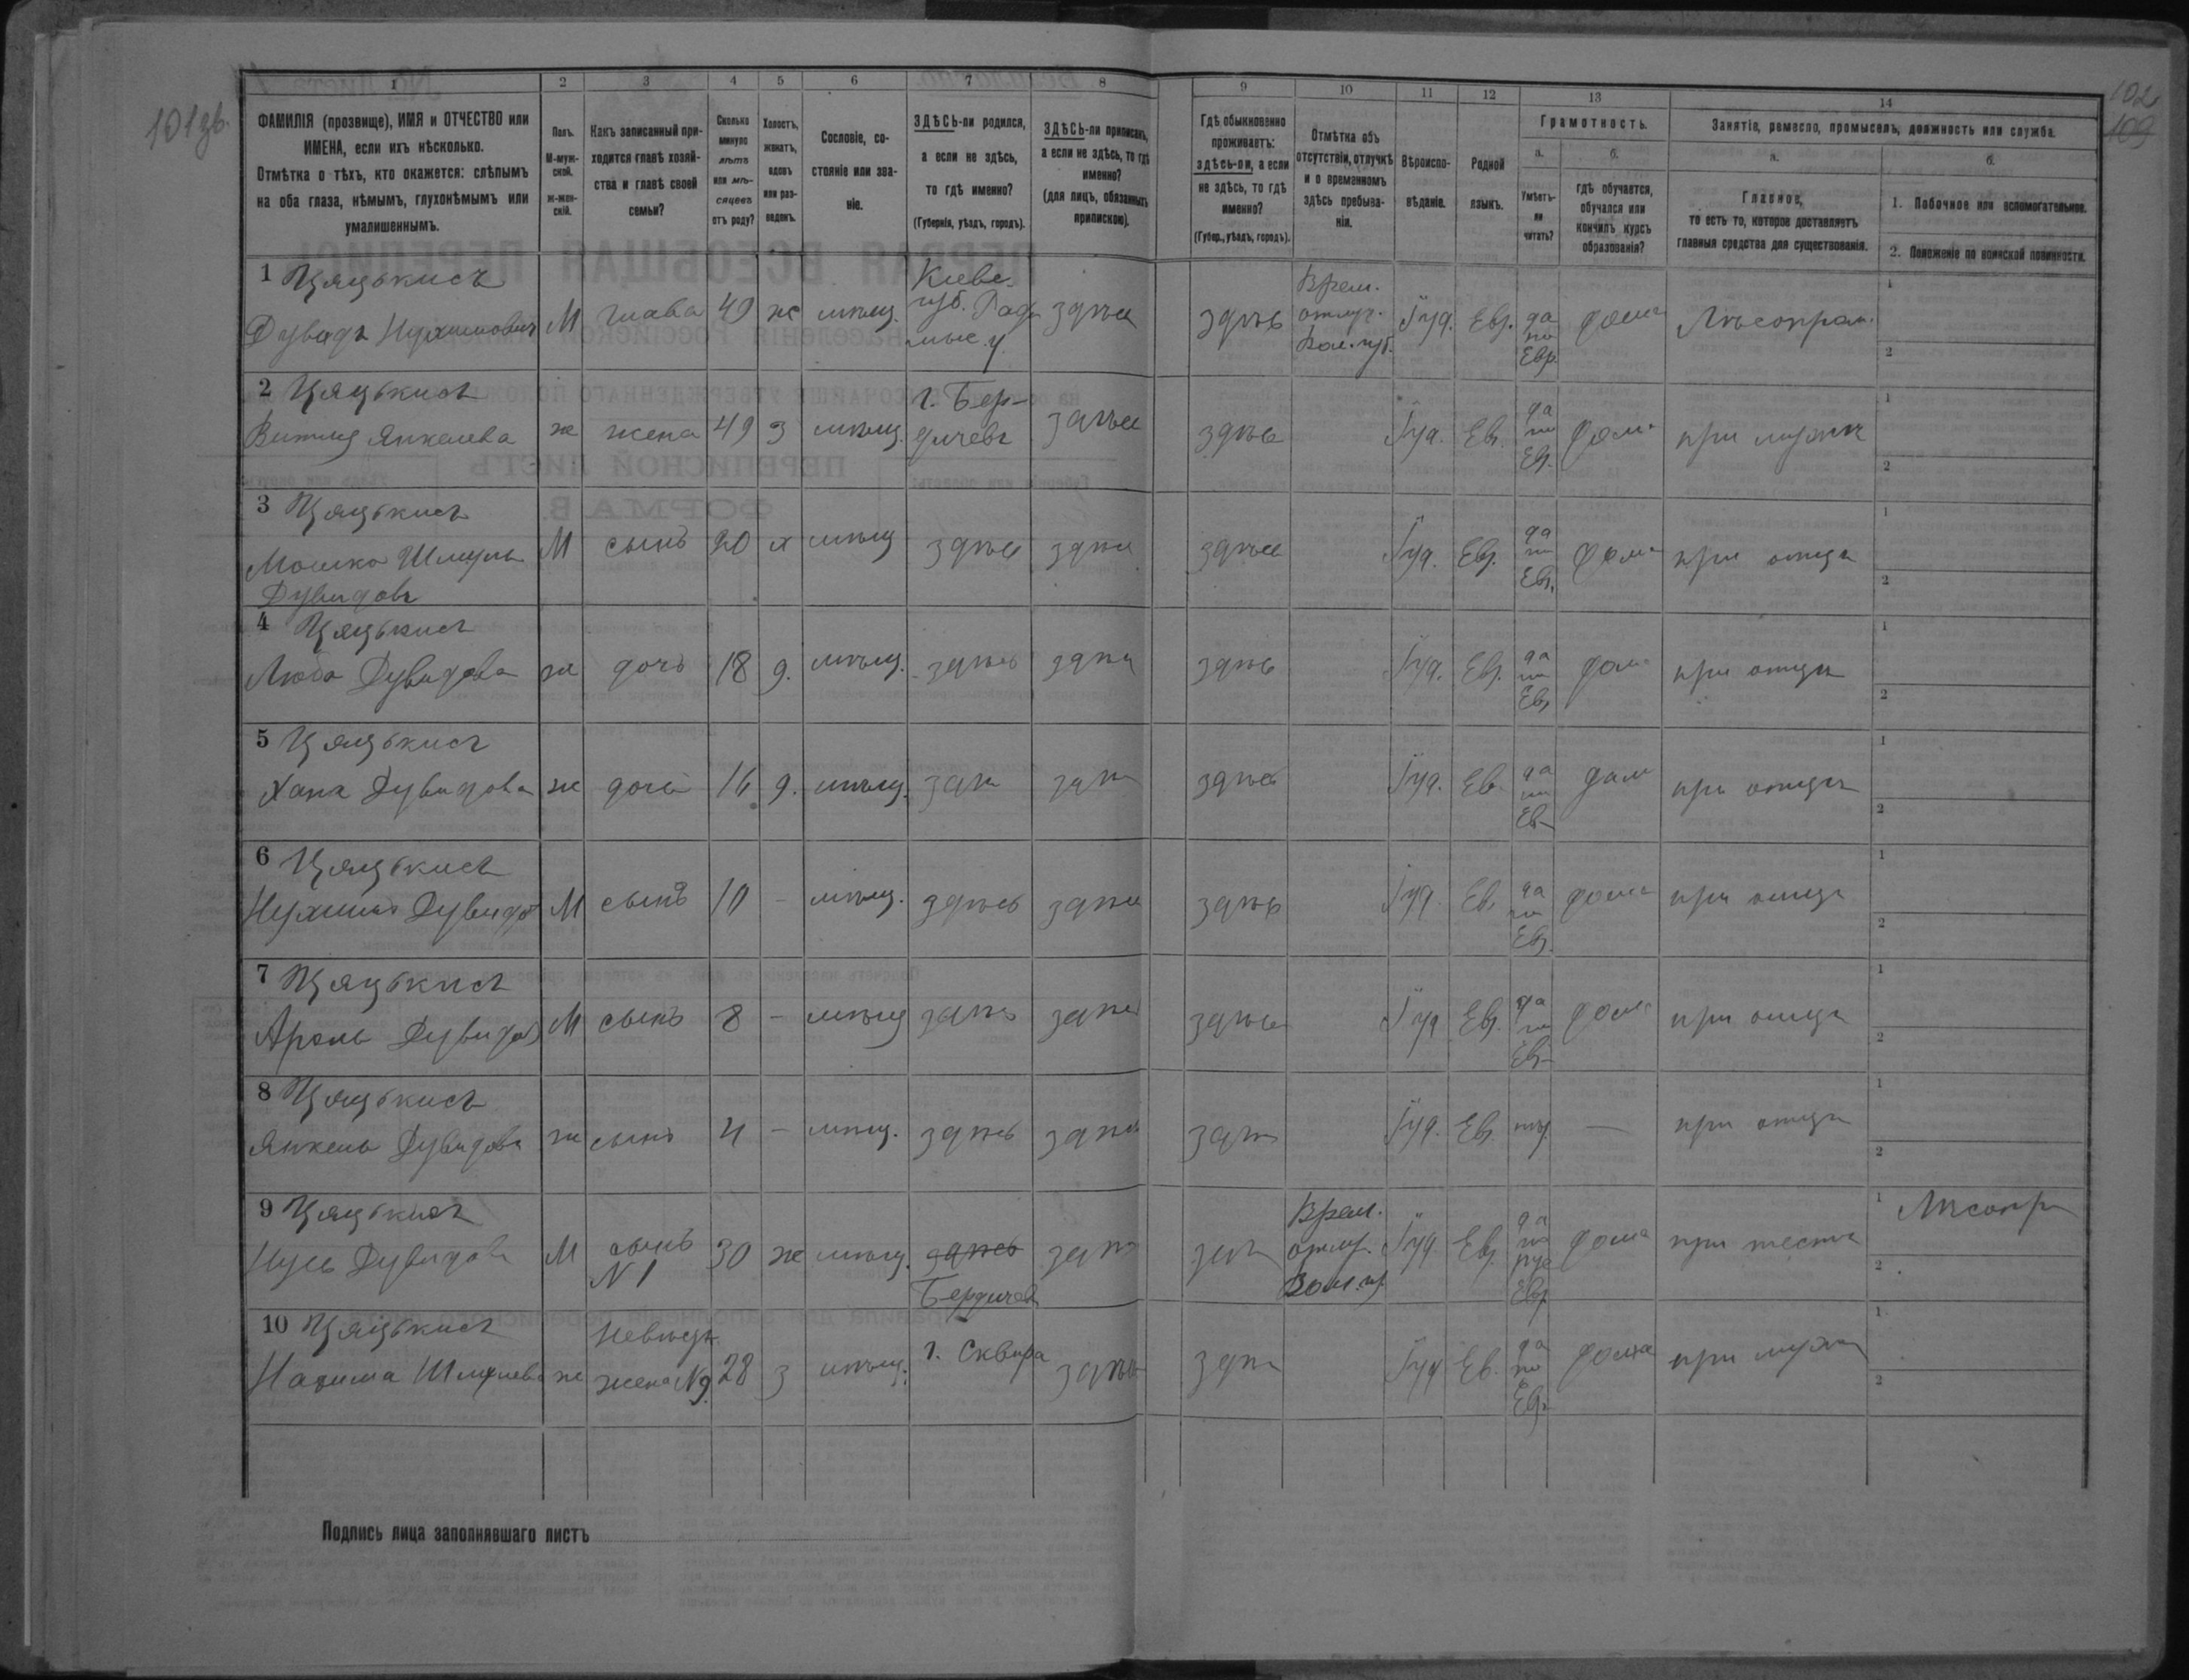 101 об.
102
109
1
2
3
4
5
6
7
8
9
10
11
12
13
14
ФАМИЛІЯ (прозвище), ИМЯ и ОТЧЕСТВО или
ИМЕНА, если ихъ нѣсколько.
Отмѣтка о тѣхъ, кто окажется: слѣпымъ
на оба глаза, нѣмымъ, глухонѣмымъ или
умалишеннымъ.
Полъ.
М-муж-
ской.
Ж-жен-
скій.
Какъ записанный при-
ходится главѣ хозяй-
ства и главѣ своей
семьи?
Сколько
минуло
лѣтъ
или мѣ-
сяцевъ
отъ роду?
Холостъ,
женатъ,
вдовъ
или раз-
веденъ.
Сословіе, со-
стояніе или зва-
ніе.
ЗДѢСЬ-ли родился,
а если не здѣсь,
то гдѣ именно?
(Губернія, уѣздъ, городъ).
ЗДѢСЬ-ли приписанъ,
а если не здѣсь, то гдѣ
именно?
(для лицъ, обязанныхъ
припискою).
Гдѣ обыкновенно
проживаетъ:
здѣсь-ли, а если
не здѣсь, то гдѣ
именно?
(Губер., уѣздъ, городъ).
Отмѣтка объ
отсутствіи, отлучкѣ
и о временномъ
здѣсь пребыва-
ніи.
Вѣроиспо-
вѣданіе.
Родной
языкъ.
Грамотность.
а.
Умѣетъ-
ли
читать?
б.
гдѣ обучается,
обучался или
кончилъ курсъ
образованія?
Занятіе, ремесло, промыселъ, должность или служба.
а.
Главное,
то есть то, которое доставляетъ
главныя средства для существованія.
б.
1. Побочное или вспомогательное.
2. Положеніе по воинской повинности.
1 Цяцькисъ
Дувидъ Нухимовичъ М глава 49 ж мѣщ. Киевс. губ. Радомыс. у. здѣсь здѣсь Врем. отлуч. Вол. губ. Іуд. Евр. да по Евр. дома Лѣсопром.
2 Цяцькисъ
Янкелева ж жена 49 з мѣщ. г. Бердичевъ здѣсь здѣсь Іуд. Ев. да по Ев. дома при мужѣ
3 Цяцькисъ
Мошко Шмуль
Дувидовъ М сынъ 20 х мѣщ здѣсь здѣсь здѣсь Іуд. Евр. да по Евр. дома при отцѣ
4 Цяцькисъ
Люба Дувидова ж дочь 18 д. мѣщ. здѣсь здѣсь здѣсь Іуд. Евр. да по Евр дом при отцѣ
5 Цяцькисъ
Хана Дувидова ж дочь 16 д. мѣщ. здѣ здѣ здѣсь Іуд. Ев. да по Ев дом при отцѣ
6 Цяцькисъ
Нухимъ Дувидов М сынъ 10 - мѣщ. здѣсь здѣсь здѣсь Іуд Ев. да по Евр. дома при отцѣ
7 Цяцькисъ
Аронъ Дувидов М сынъ 8 - мѣщ здѣсь здѣсь здѣсь Іуд Евр. да по Ев дома при отцѣ
8 Цяцькисъ
Янкель Дувидовъ ж сынъ 4 - мѣщ. здѣсь здѣсь здѣ Іуд. Евр. нѣт. — при отцѣ
9 Цяцькисъ
Дувидовъ М сынъ N 1 30 ж мѣщ. здѣсь Бердичев здѣ здѣ Врем. отлуч. Вол. гу. Іуд Евр. да по рус Евр дома при тестѣ Лѣсопр
10 Цяцькисъ
ж Невѣстк. жена N 9. 28 з мѣщ. г. Сквира здѣсь здѣ Іуд Ев. да по Ев. дома при мужѣ
Подпись лица заполнявшаго листъ